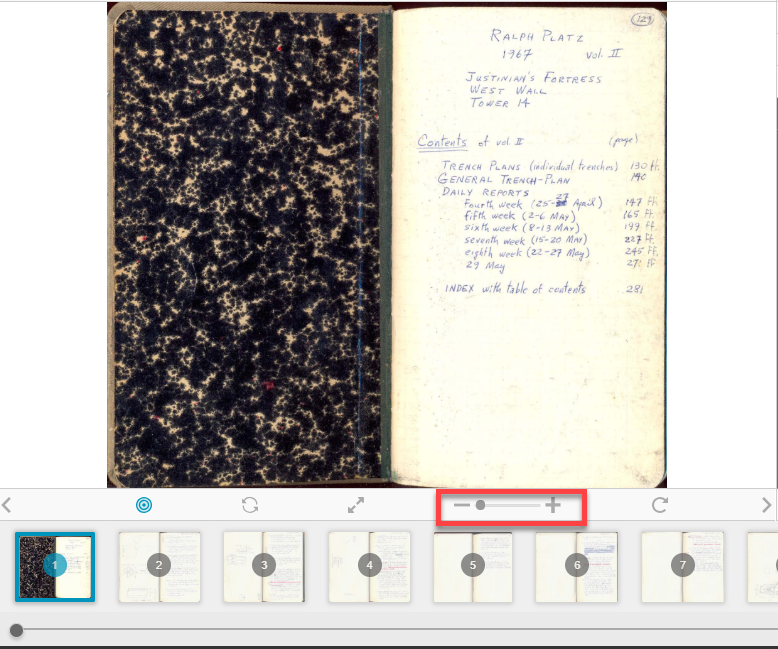 129
RALPH PLATZ
1967 vol. II
JUSTINIAN'S FORTRESS
WEST WALL
TOWER 14
Contents of vol. II (page)
TRENCH PLANS (individual trenches) 130 ff.
GENERAL TRENCH-PLAN 140
DAILY REPORTS
Fourth week (25-27 April) 147 ff.
fifth week (2-6 MAY) 165 ff.
sixth week (8-13 MAY) 199 ff.
seventh week (15-20 MAY) 227 ff.
eighth week (22-27 MAY) 245 ff.
29 May 271 ff
INDEX with table of contents 281
1 2 3 4 5 6 7